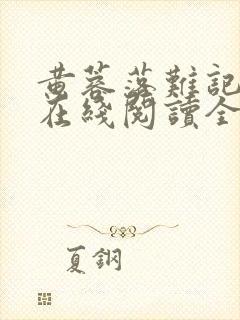 黄蓉落難記
在綫閱讀全
夏鋼